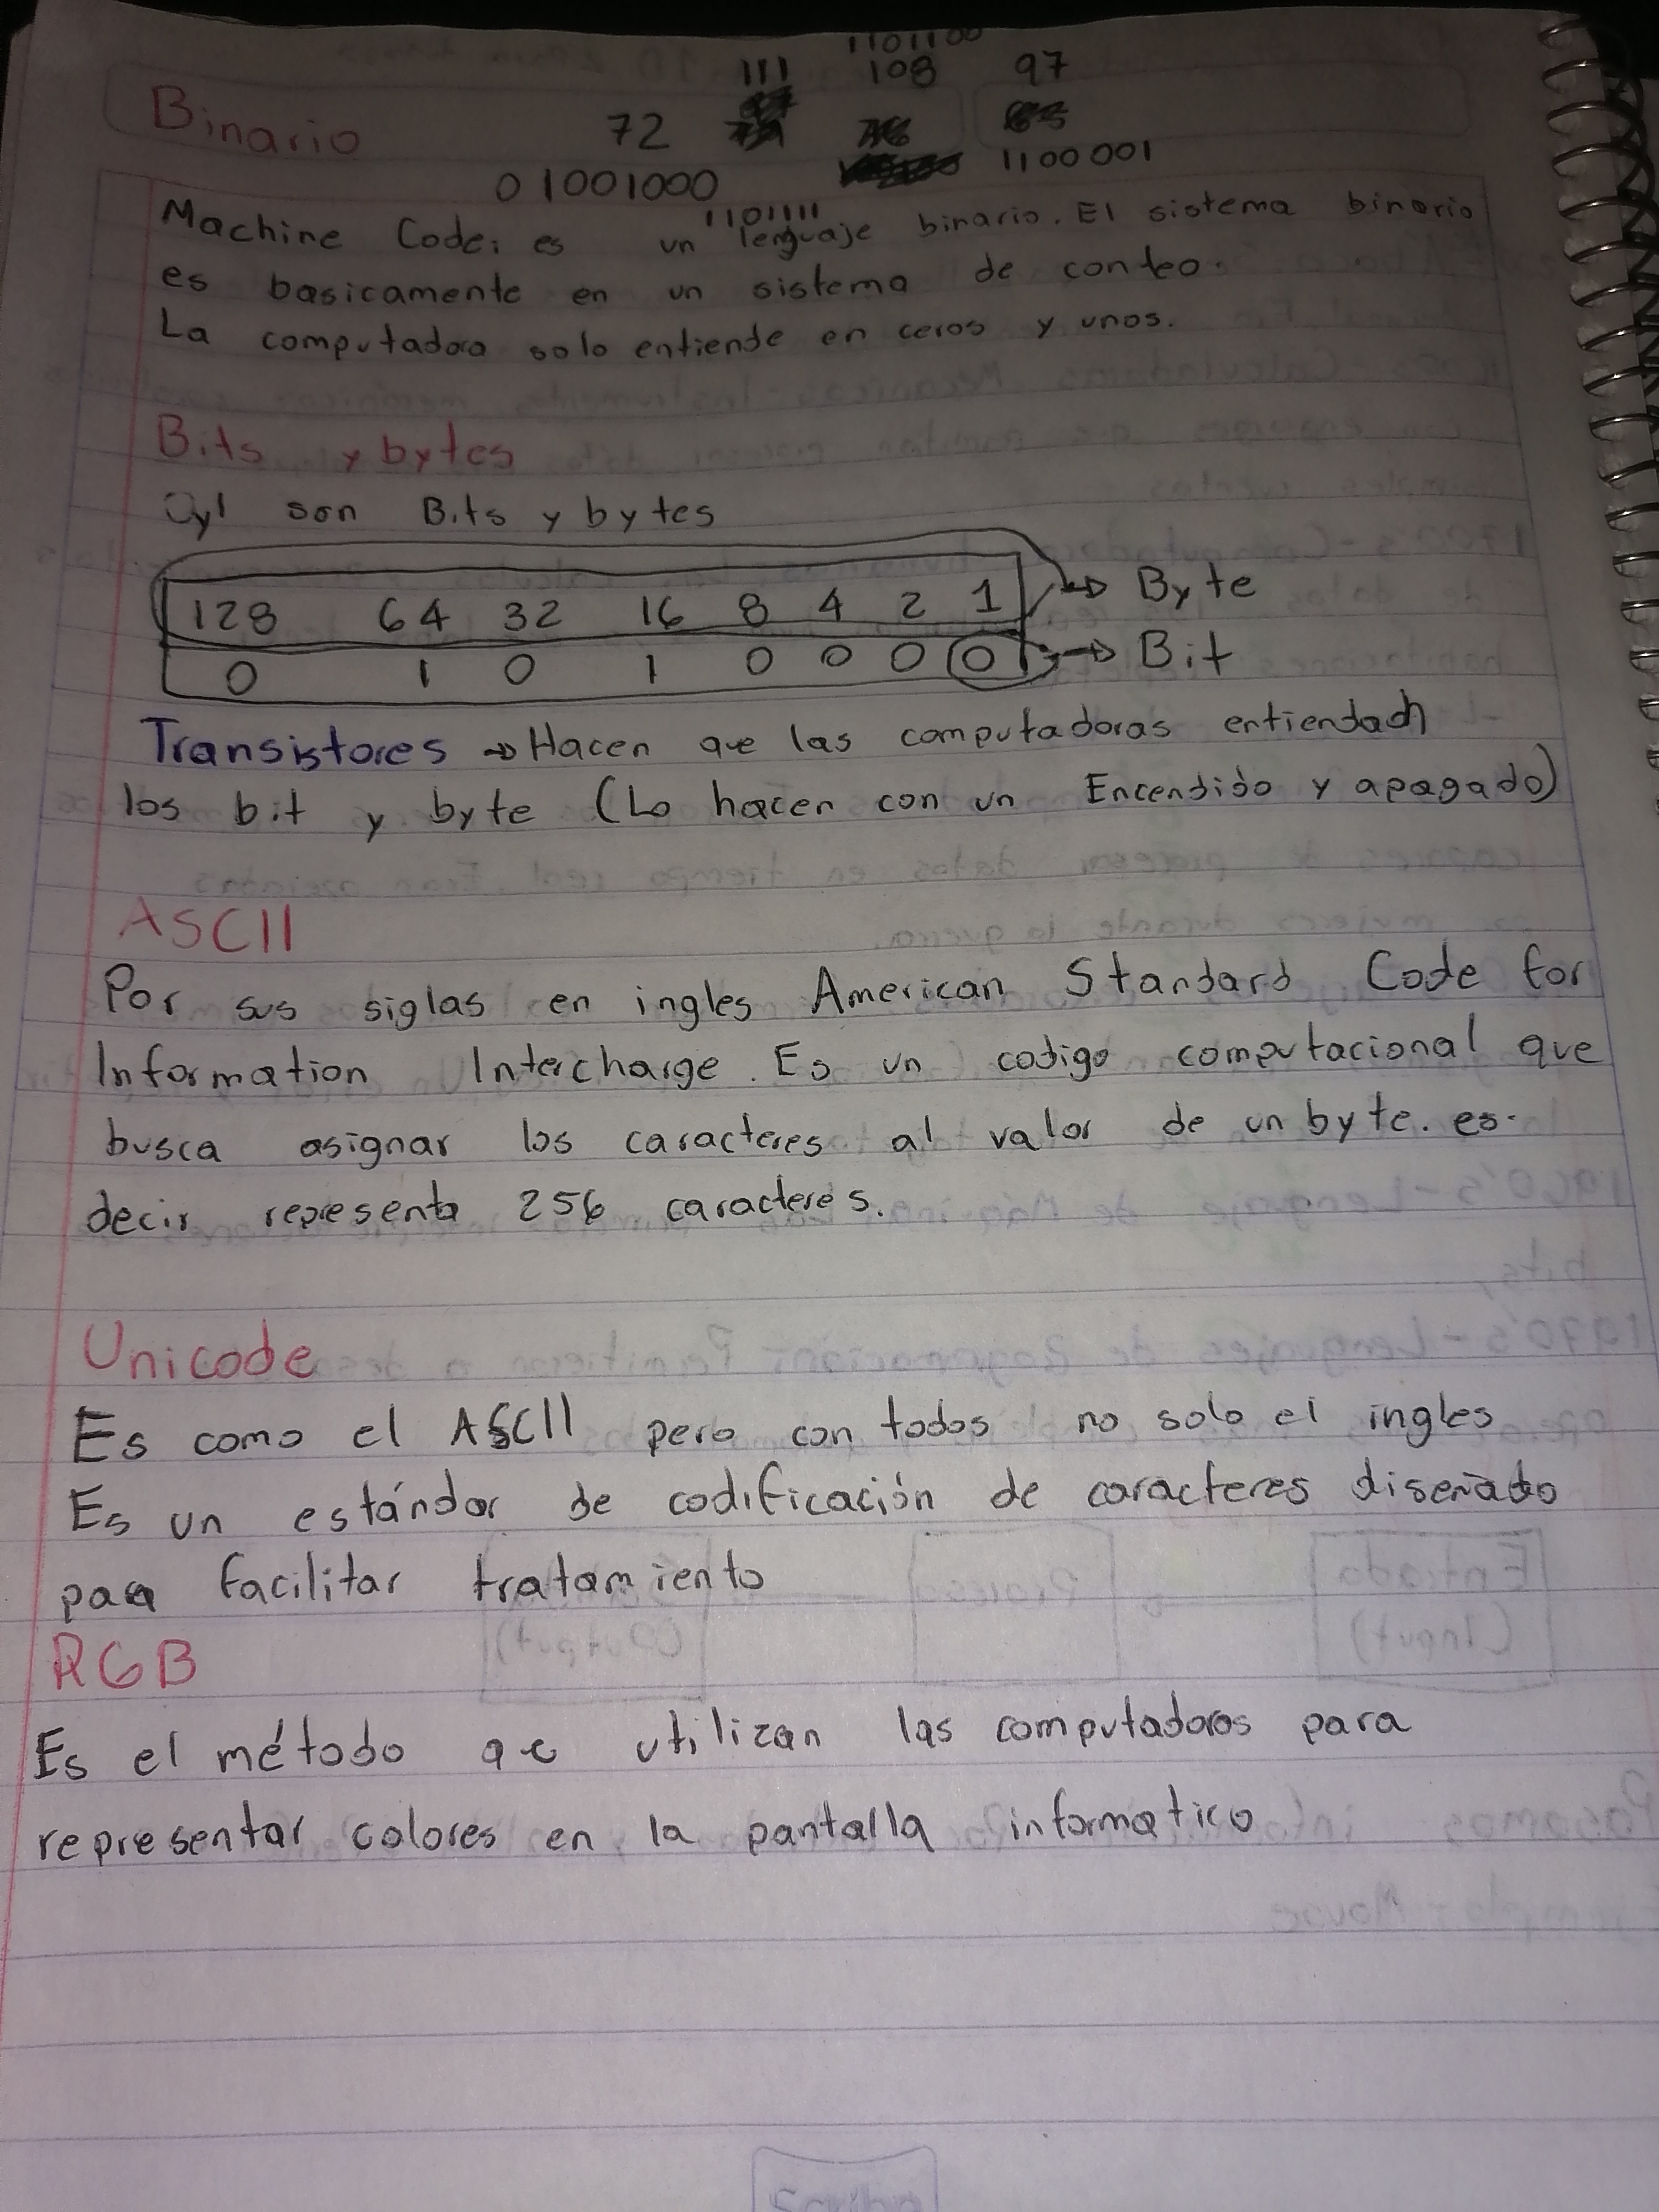 1101100
111 108 97
Binario 72
1100001
01001000
1101111
Machine Code: es un lenguaje binario. El sistema binario
es basicamente en un sistema de conteo.
La computadora solo entiende en ceros y unos.
Bits y bytes
0y1 son Bits y bytes
128 64 32 16 8 4 2 1 → Byte
0 1 0 1 0 0 0 0 → Bit
Transistores → Hacen que las computadoras entiendan
los bit y byte (Lo hacen con un Encendido y apagado)
ASCII
Por sus siglas en ingles American Standard Code for
Information Intercharge. Es un codigo computacional que
busca asignar los caracteres al valor de un byte. es
decir representa 256 caracteres.
Unicode
Es como el ASCII pero con todos no solo el ingles
Es un estándar de codificación de caracteres diseñado
para facilitar tratamiento
RGB
Es el método qe utilizan las computadoras para
representar colores en la pantalla informatico
Scribe